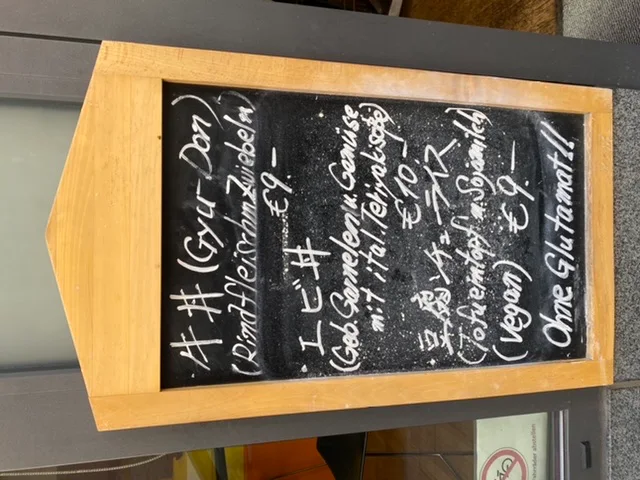 ・牛丼 (Gyu-Don)
(Rindfleisch m. Zwiebeln)
€9.-
・エビ丼
(Geb. Garnelen u. Gemüse
mit ital. Teriyakisoße)
€10.-
・豆腐シチューライス
(Tofueintopf m. Sojamilch)
(Vegan) €9.-
Ohne Glutamat!!